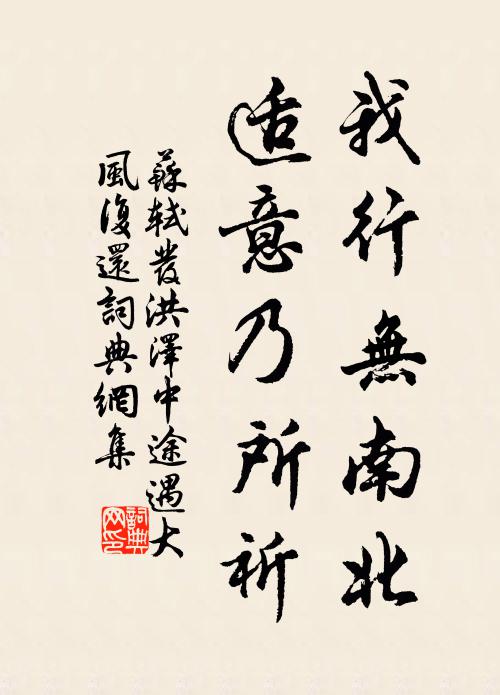 我行無南北
适意乃所祈
蘇軾發洪澤中途遇大
風復還詞典網集
詞典
网印